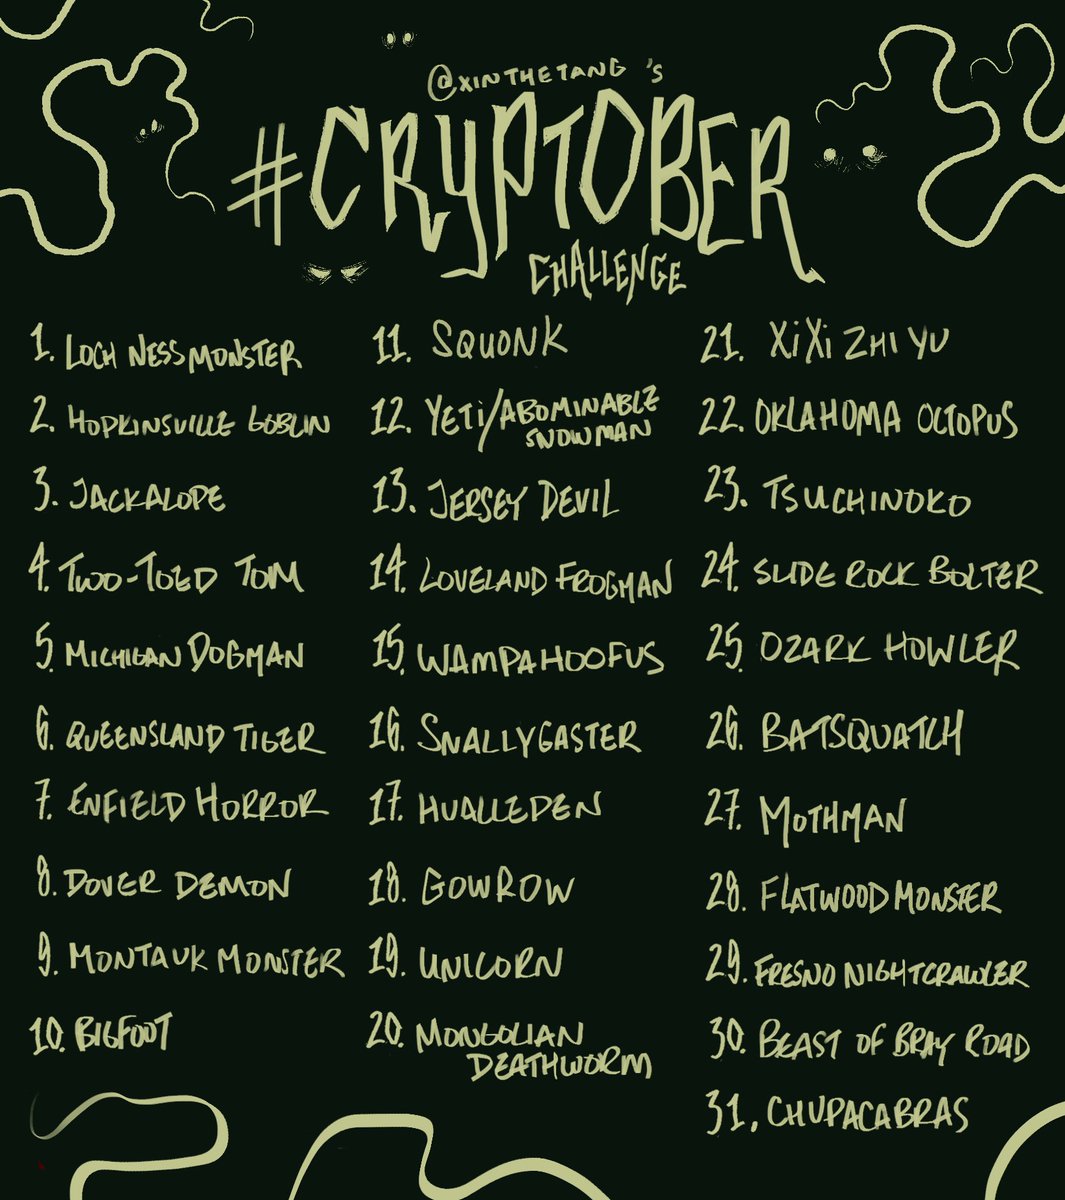 @XINTHETANG 'S
#CRYPTOBER
CHALLENGE
1. LOCH NESS MONSTER
2. HOPKINSVILLE GOBLIN
3. JACKALOPE
4. TWO-TOED TOM
5. MICHIGAN DOGMAN
6. QUEENSLAND TIGER
7. ENFIELD HORROR
8. DOVER DEMON
9. MONTAUK MONSTER
10. BIGFOOT
11. SQUONK
12. YETI/ABOMINABLE
SNOWMAN
13. JERSEY DEVIL
14. LOVELAND FROGMAN
15. WAMPAHOOFUS
16. SNALLYGASTER
17. HUALLEPEN
18. GOWROW
19. UNICORN
20. MONGOLIAN
DEATHWORM
21. XIXI ZHI YU
22. OKLAHOMA OCTOPUS
23. TSUCHINOKO
24. SLIDE ROCK BOLTER
25. OZARK HOWLER
26. BATSQUATCH
27. MOTHMAN
28. FLATWOOD MONSTER
29. FRESNO NIGHTCRAWLER
30. BEAST OF BRAY ROAD
31. CHUPACABRAS